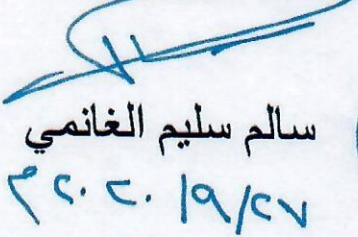 سالم سليم الغانمي
٢٧/٩/٢٠٢٠م